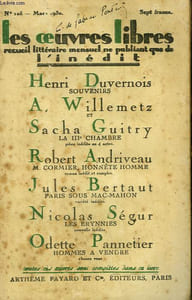 Mars 1930. Sept francs.
les œuvres libres
recueil littéraire mensuel ne publiant que de
l'inédit
Henri Duvernois
SOUVENIRS
A. Willemetz
ET
Sacha Guitry
LA IIIe CHAMBRE
Robert Andriveau
M. CORMIER, HONNÊTE HOMME
roman inédit et complet.
Jules Bertaut
PARIS SOUS MAC-MAHON
Nicolas Ségur
LES ERYNNIES
Odette Pannetier
HOMMES A VENDRE
toutes ces œuvres sont complètes dans ce livre
ARTHÈME FAYARD ET Cie, ÉDITEURS, PARIS